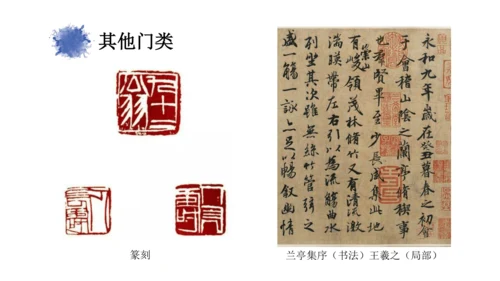 其他门类
永和九年歲在癸丑暮春之初會
于會稽山陰之蘭亭脩稧事
也羣賢畢至少長咸集此地
有崇山峻領茂林脩竹又有清流激
湍暎帶左右引以為流觴曲水
列坐其次雖無絲竹管弦之
盛一觴一詠亦足以暢敘幽情
篆刻
兰亭集序（书法）王羲之（局部）